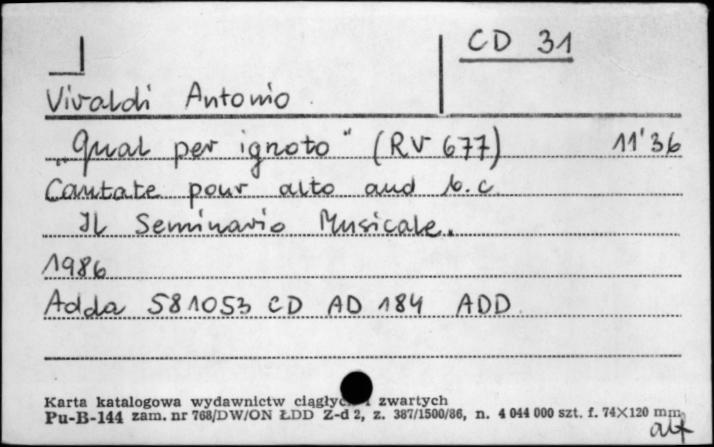 CD 31
Vivaldi Antonio
"Qual per ignoto" (RV 677) 11'36
Cantate pour alto and b.c.
Il Seminario Musicale.
1986
Adda 581053 CD AD 184 ADD
Karta katalogowa wydawnictw zwartych
Pu-B-144 zam. nr 768/DW/ON ŁDD Z-d 2, z. 387/1500/86, n. 4 044 000 szt. f. 74X120 mm